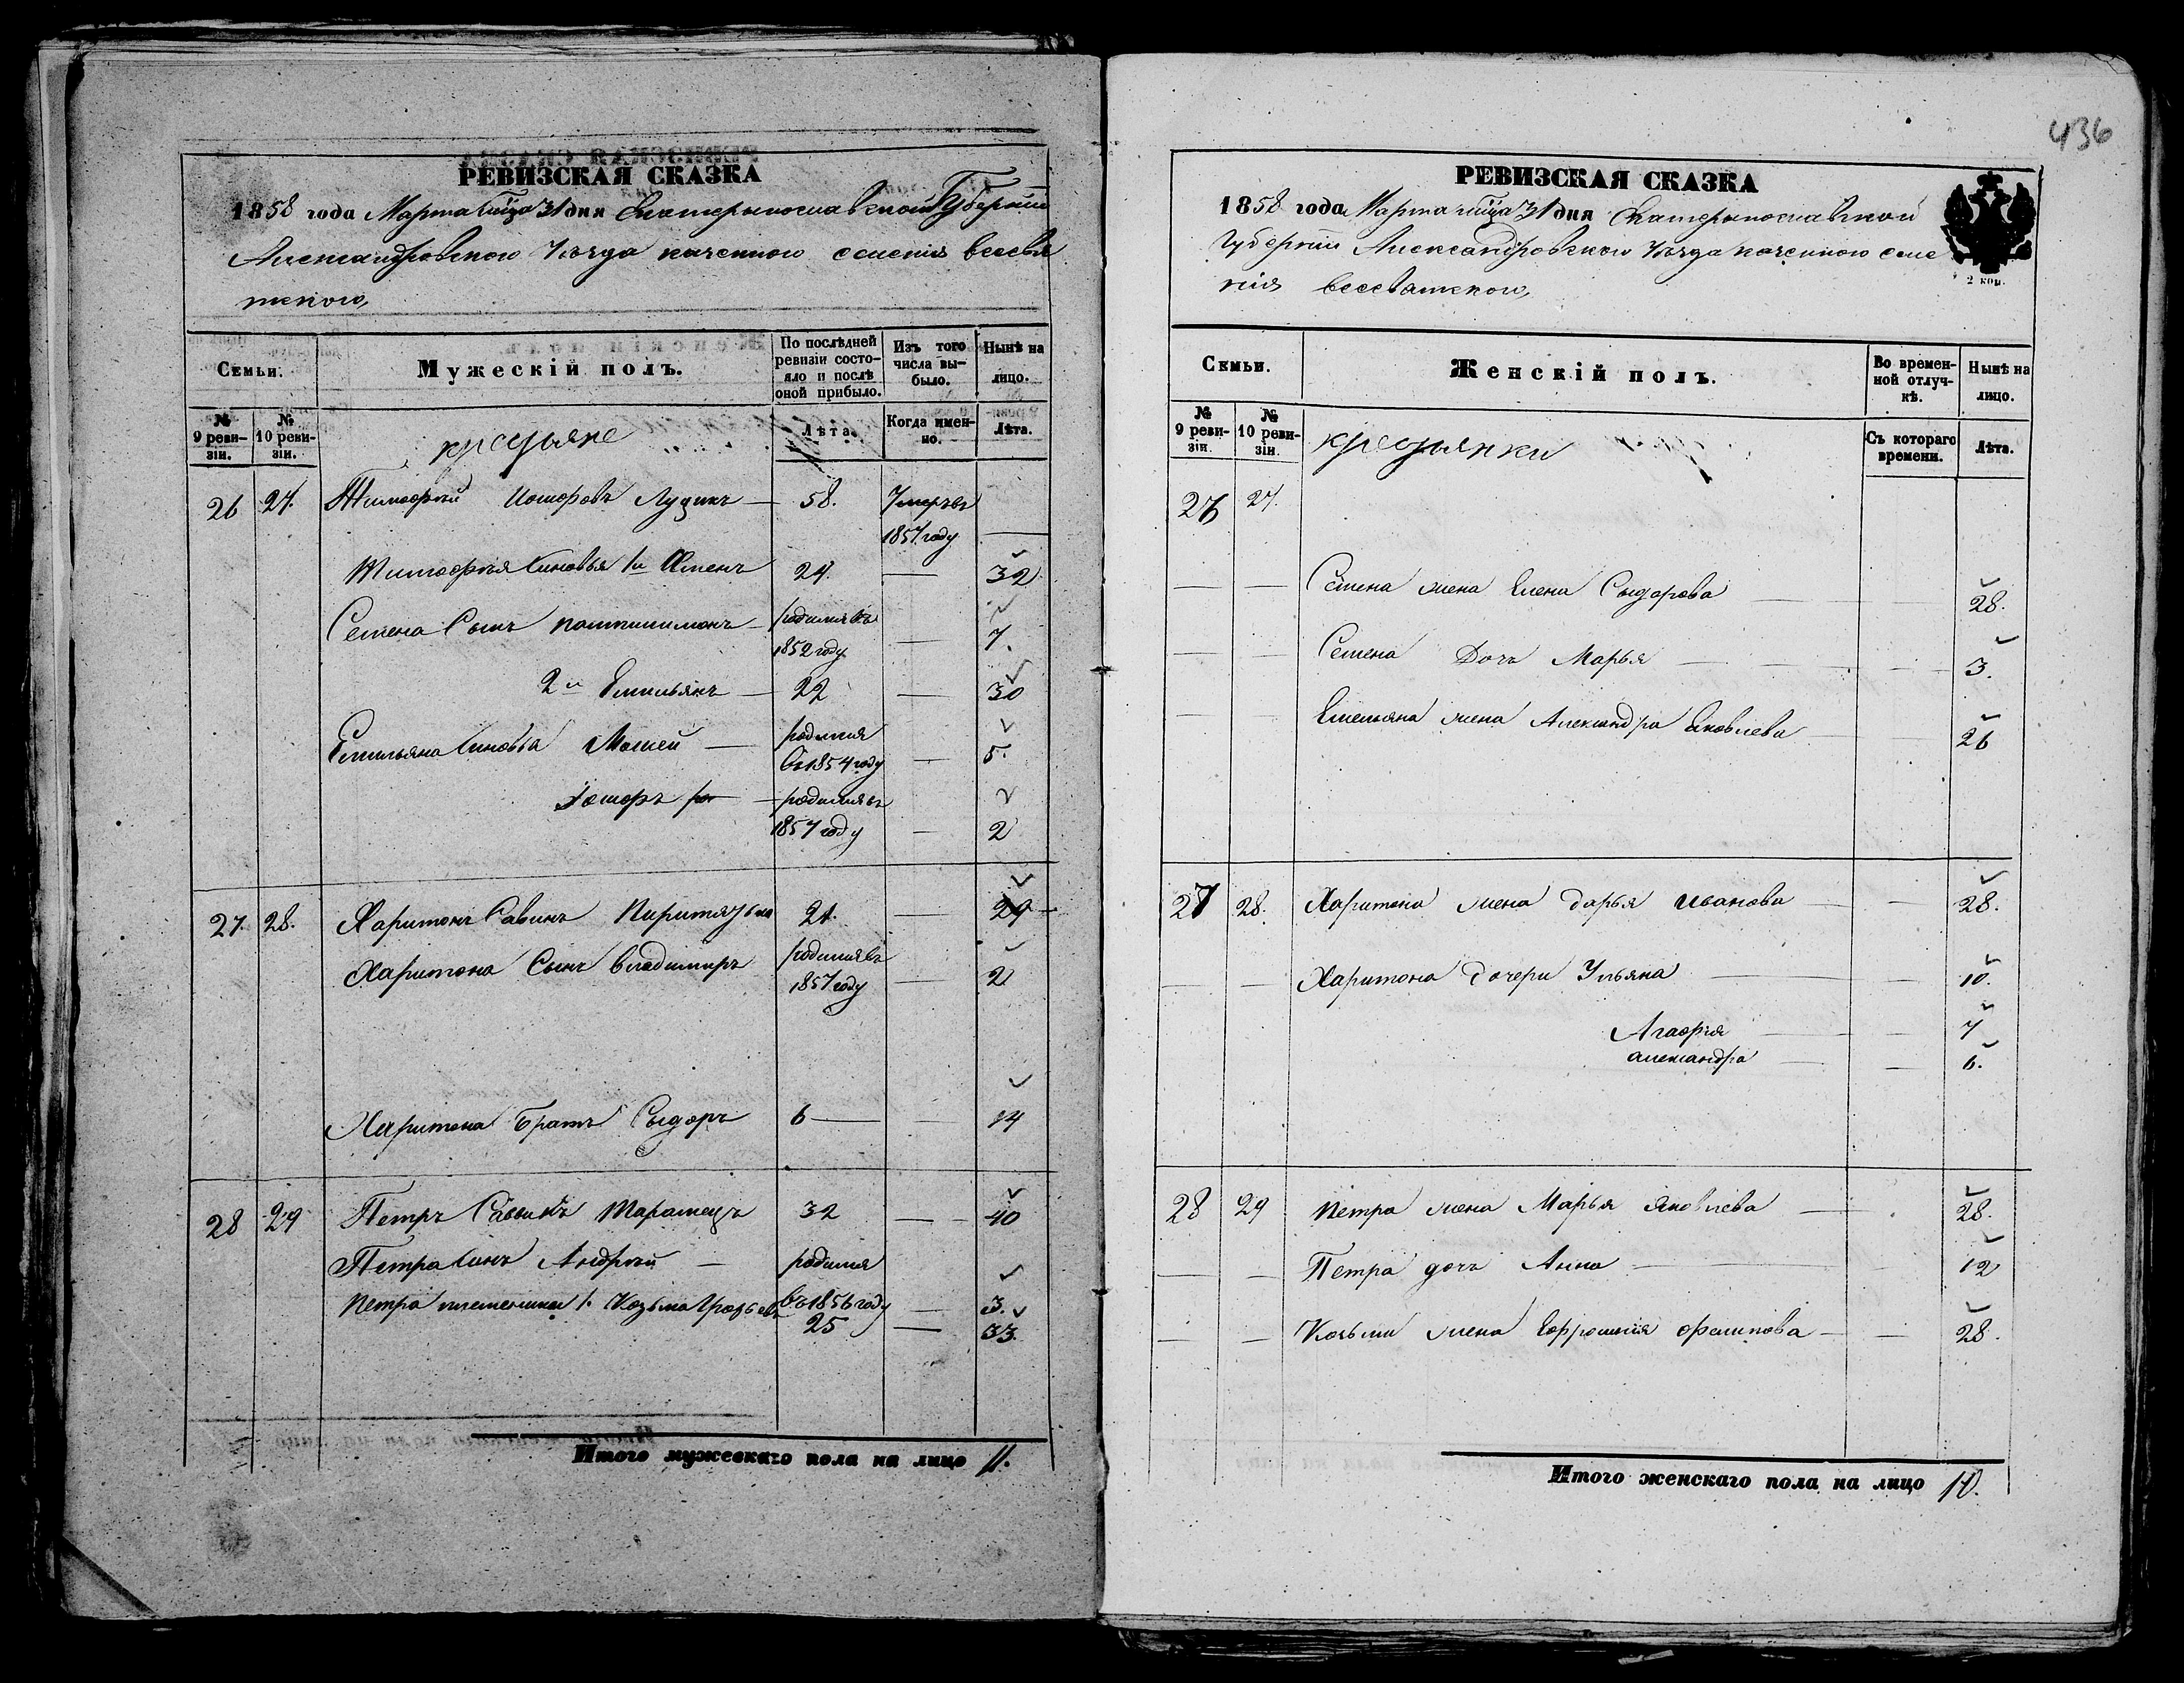 436
РЕВИЗСКАЯ СКАЗКА
1858 года Марта м̃ца 31 дня Екатеринославской Губерніи
Александровского Уѣзда казенного селенія весевя
тского,
Семьи.
Мужескій полъ.
По послѣдней ревизіи состояло и послѣ оной прибыло.
Изъ того числа выбыло.
Нынѣ на лицо.
№ 9 ревизіи.
№ 10 ревизіи.
крестьяне
Лѣта.
Когда именно.
Лѣта.
26 27. Тимофей Лузикъ — 58. Умеръ въ
1857 году —
Тимофея Синовья 1й Семенъ 24. — 32
Семена Сынъ родился въ
1852 году — 7.
2й Емильянъ — 22 — 30
Емильяна Синовья Мосѣй — родился
въ 1854 году — 5.
— родился въ
1857 году — 2
27. 28. Харитонъ Савинъ 21. — 29 —
Харитона Сынъ владимиръ родился въ
1857 году — 2
Харитона Братъ Сыдоръ 6 — — 14
28 29 Петръ Таранецъ 32 — 40
Петра Синъ Андрѣй — родился
въ 1856 году — 3.
Петра племенники 1. Козьма 25 — 33.
Итого мужескаго пола на лицо 11.
РЕВИЗСКАЯ СКАЗКА
1858 года Марта м̃ца 31 дня Екатеринославской
Губерніи Александровского Уѣзда казенного селе
нія весеватского,
2 коп.
Семьи.
Женскій полъ.
Во временной отлучкѣ.
Нынѣ на лицо.
№ 9 ревизіи.
№ 10 ревизіи.
крестьянки
Съ котораго времени.
Лѣта.
26 27.
— — Семена жена Елена Сыдорова — — 28.
— — Семена Дочь Марья — — 3.
— — Емельяна жена Александра Яковлева — — 26
27 28. Харитона жена Дарья Иванова — — 28.
— — Харитона дочери Ульяна — — 10.
Агафія — — 7
Александра — — 6.
28 29 Петра жена Марья Яковлева — 28.
— — Петра дочь Анна — 12
— — Козьми жена Ефросинія Филипова — — 28.
Итого женскаго пола на лицо 10.